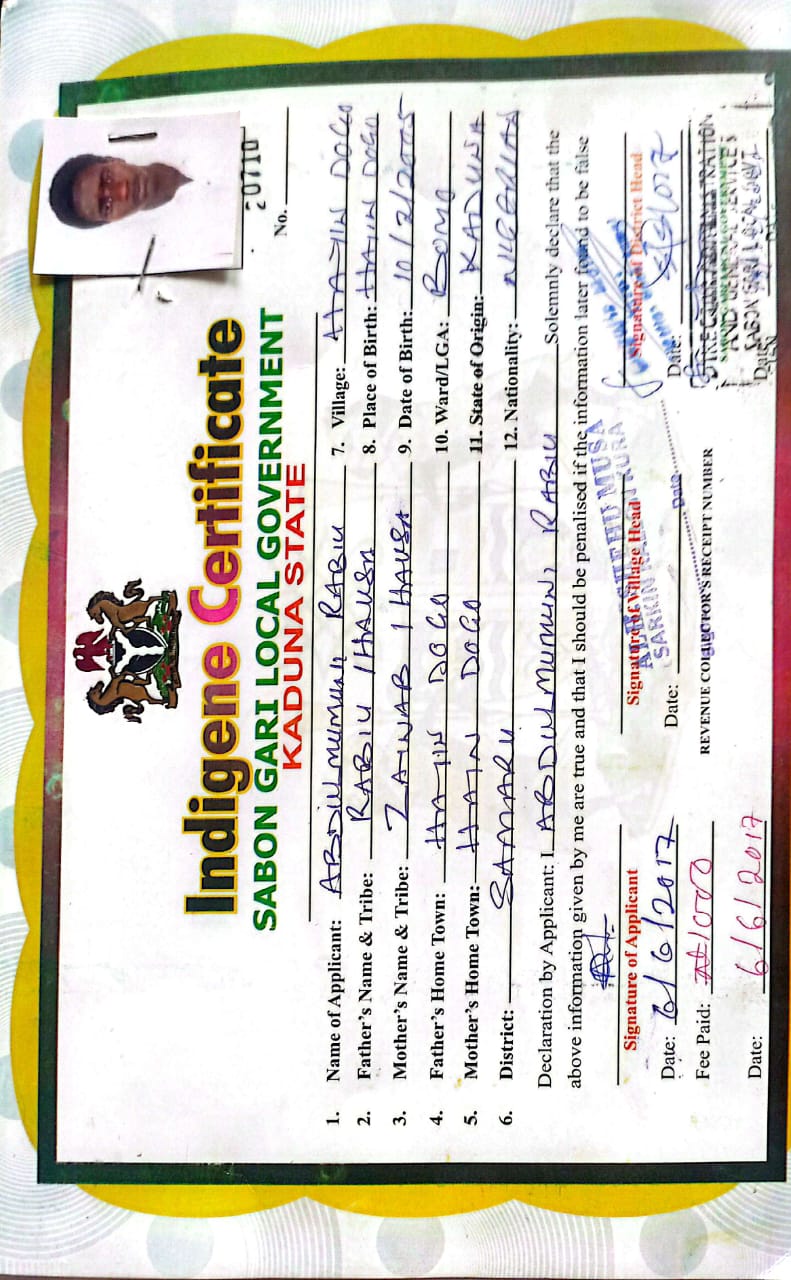 Indigene Certificate
SABON GARI LOCAL GOVERNMENT
KADUNA STATE
20710
No.
1. Name of Applicant: ABDULMUMUNI RABIU
2. Father's Name & Tribe: RABIU / HAUSA
3. Mother's Name & Tribe: ZAINAB / HAUSA
4. Father's Home Town: HAJIN DOGO
5. Mother's Home Town: HAJIN DOGO
6. District: SAMARU
7. Village: HAJIN DOGO
8. Place of Birth: HAJIN DOGO
9. Date of Birth: 10/2/2005
10. Ward/LGA: BOMO
11. State of Origin: KADUNA
12. Nationality: NIGERIAN
Declaration by Applicant: I ABDULMUMUNI RABIU Solemnly declare that the
above information given by me are true and that I should be penalised if the information later found to be false
Signature of Applicant
Date: 6/6/2017
Signature of Village Head
SHEHU MUSA
SARKIN
Date:
Date
Signature of District Head
Date:
Fee Paid: ₦1000
REVENUE COLLECTOR'S RECEIPT NUMBER
DIRECTOR ADMINISTRATION
AND GENERAL SERVICES
SABON GARI LOCAL GOVT
Date: 6/6/2017
Date: